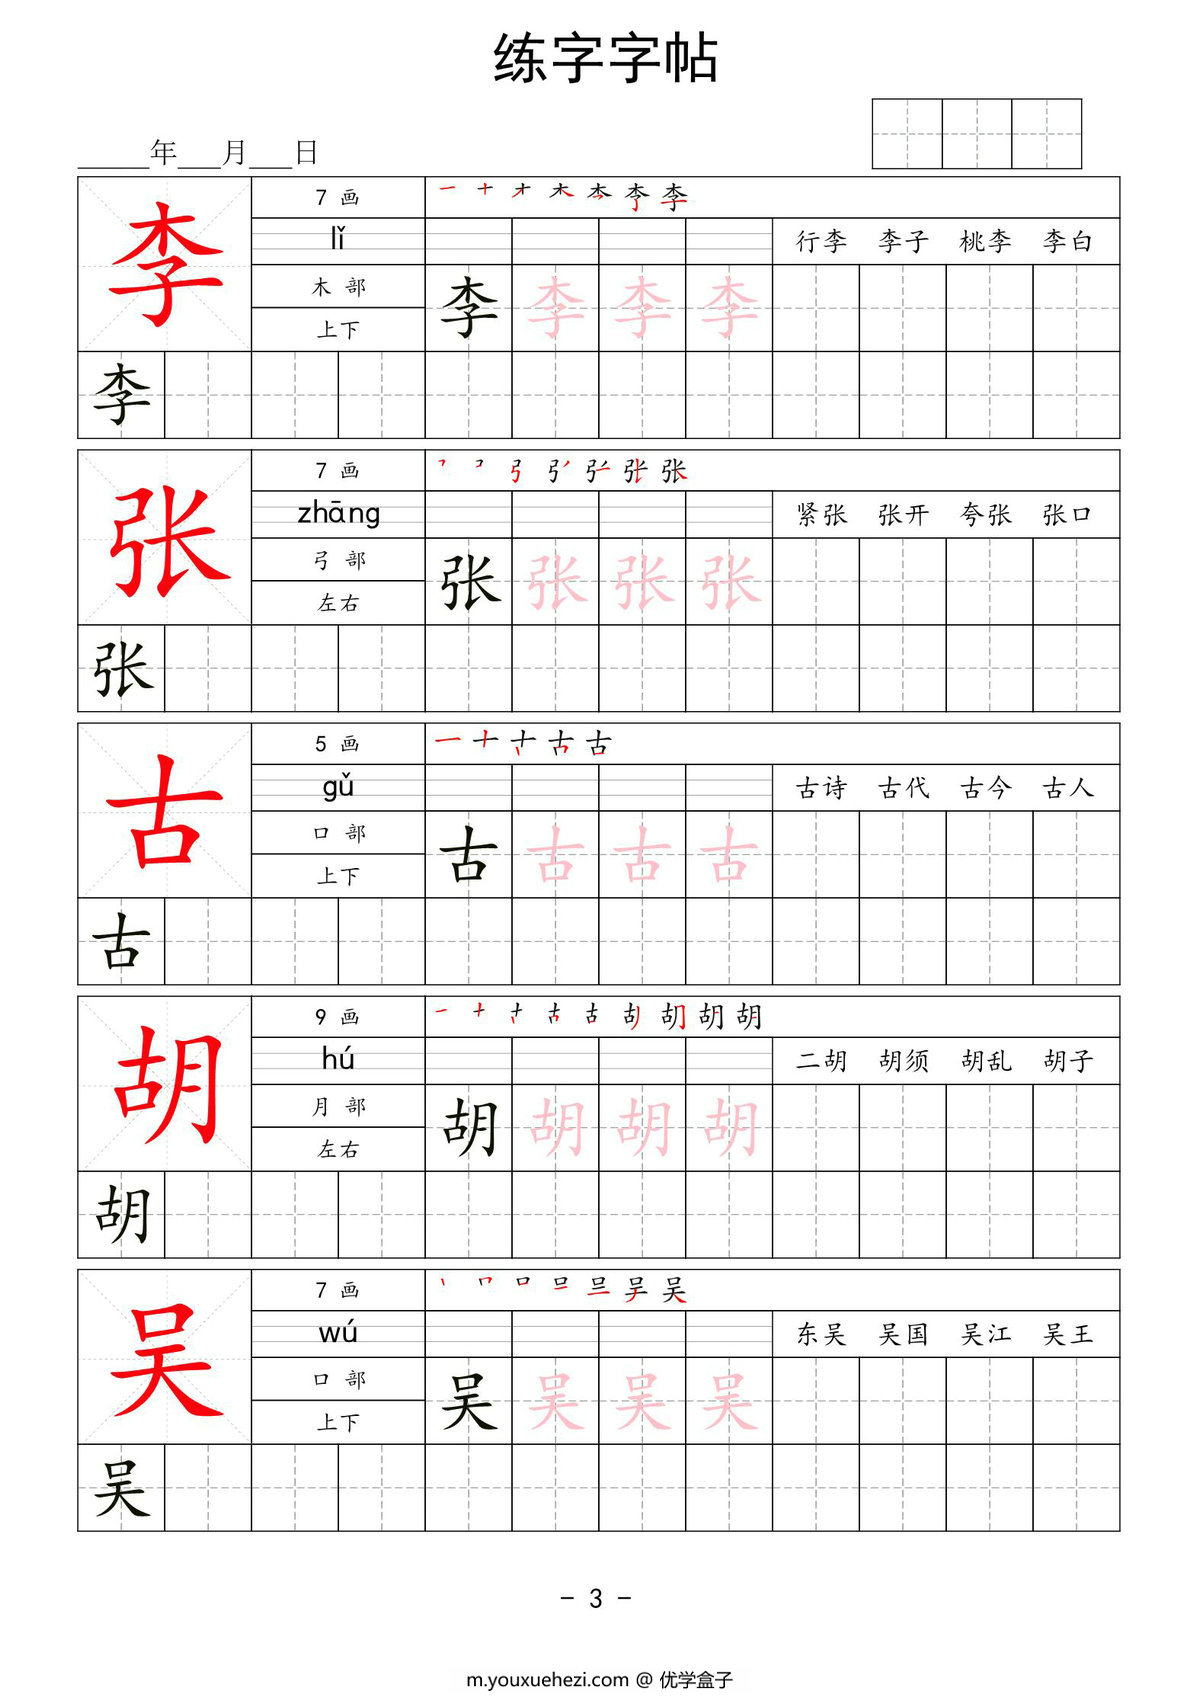 练字字帖
______年___月___日
李 7 画 一 十 才 木 本 李 李
lǐ 行李 李子 桃李 李白
木 部 李 李 李 李
上下
李
张 7 画 张
zhāng 紧张 张开 夸张 张口
弓 部 张 张 张 张
左右
张
古 5 画 一 十 古 古
gǔ 古诗 古代 古今 古人
口 部 古 古 古 古
上下
古
胡 9 画 一 十 古 胡 胡
hú 二胡 胡须 胡乱 胡子
月 部 胡 胡 胡 胡
左右
胡
吴 7 画 口 吴
wú 东吴 吴国 吴江 吴王
口 部 吴 吴 吴 吴
上下
吴
- 3 -
m.youxuehezi.com @ 优学盒子